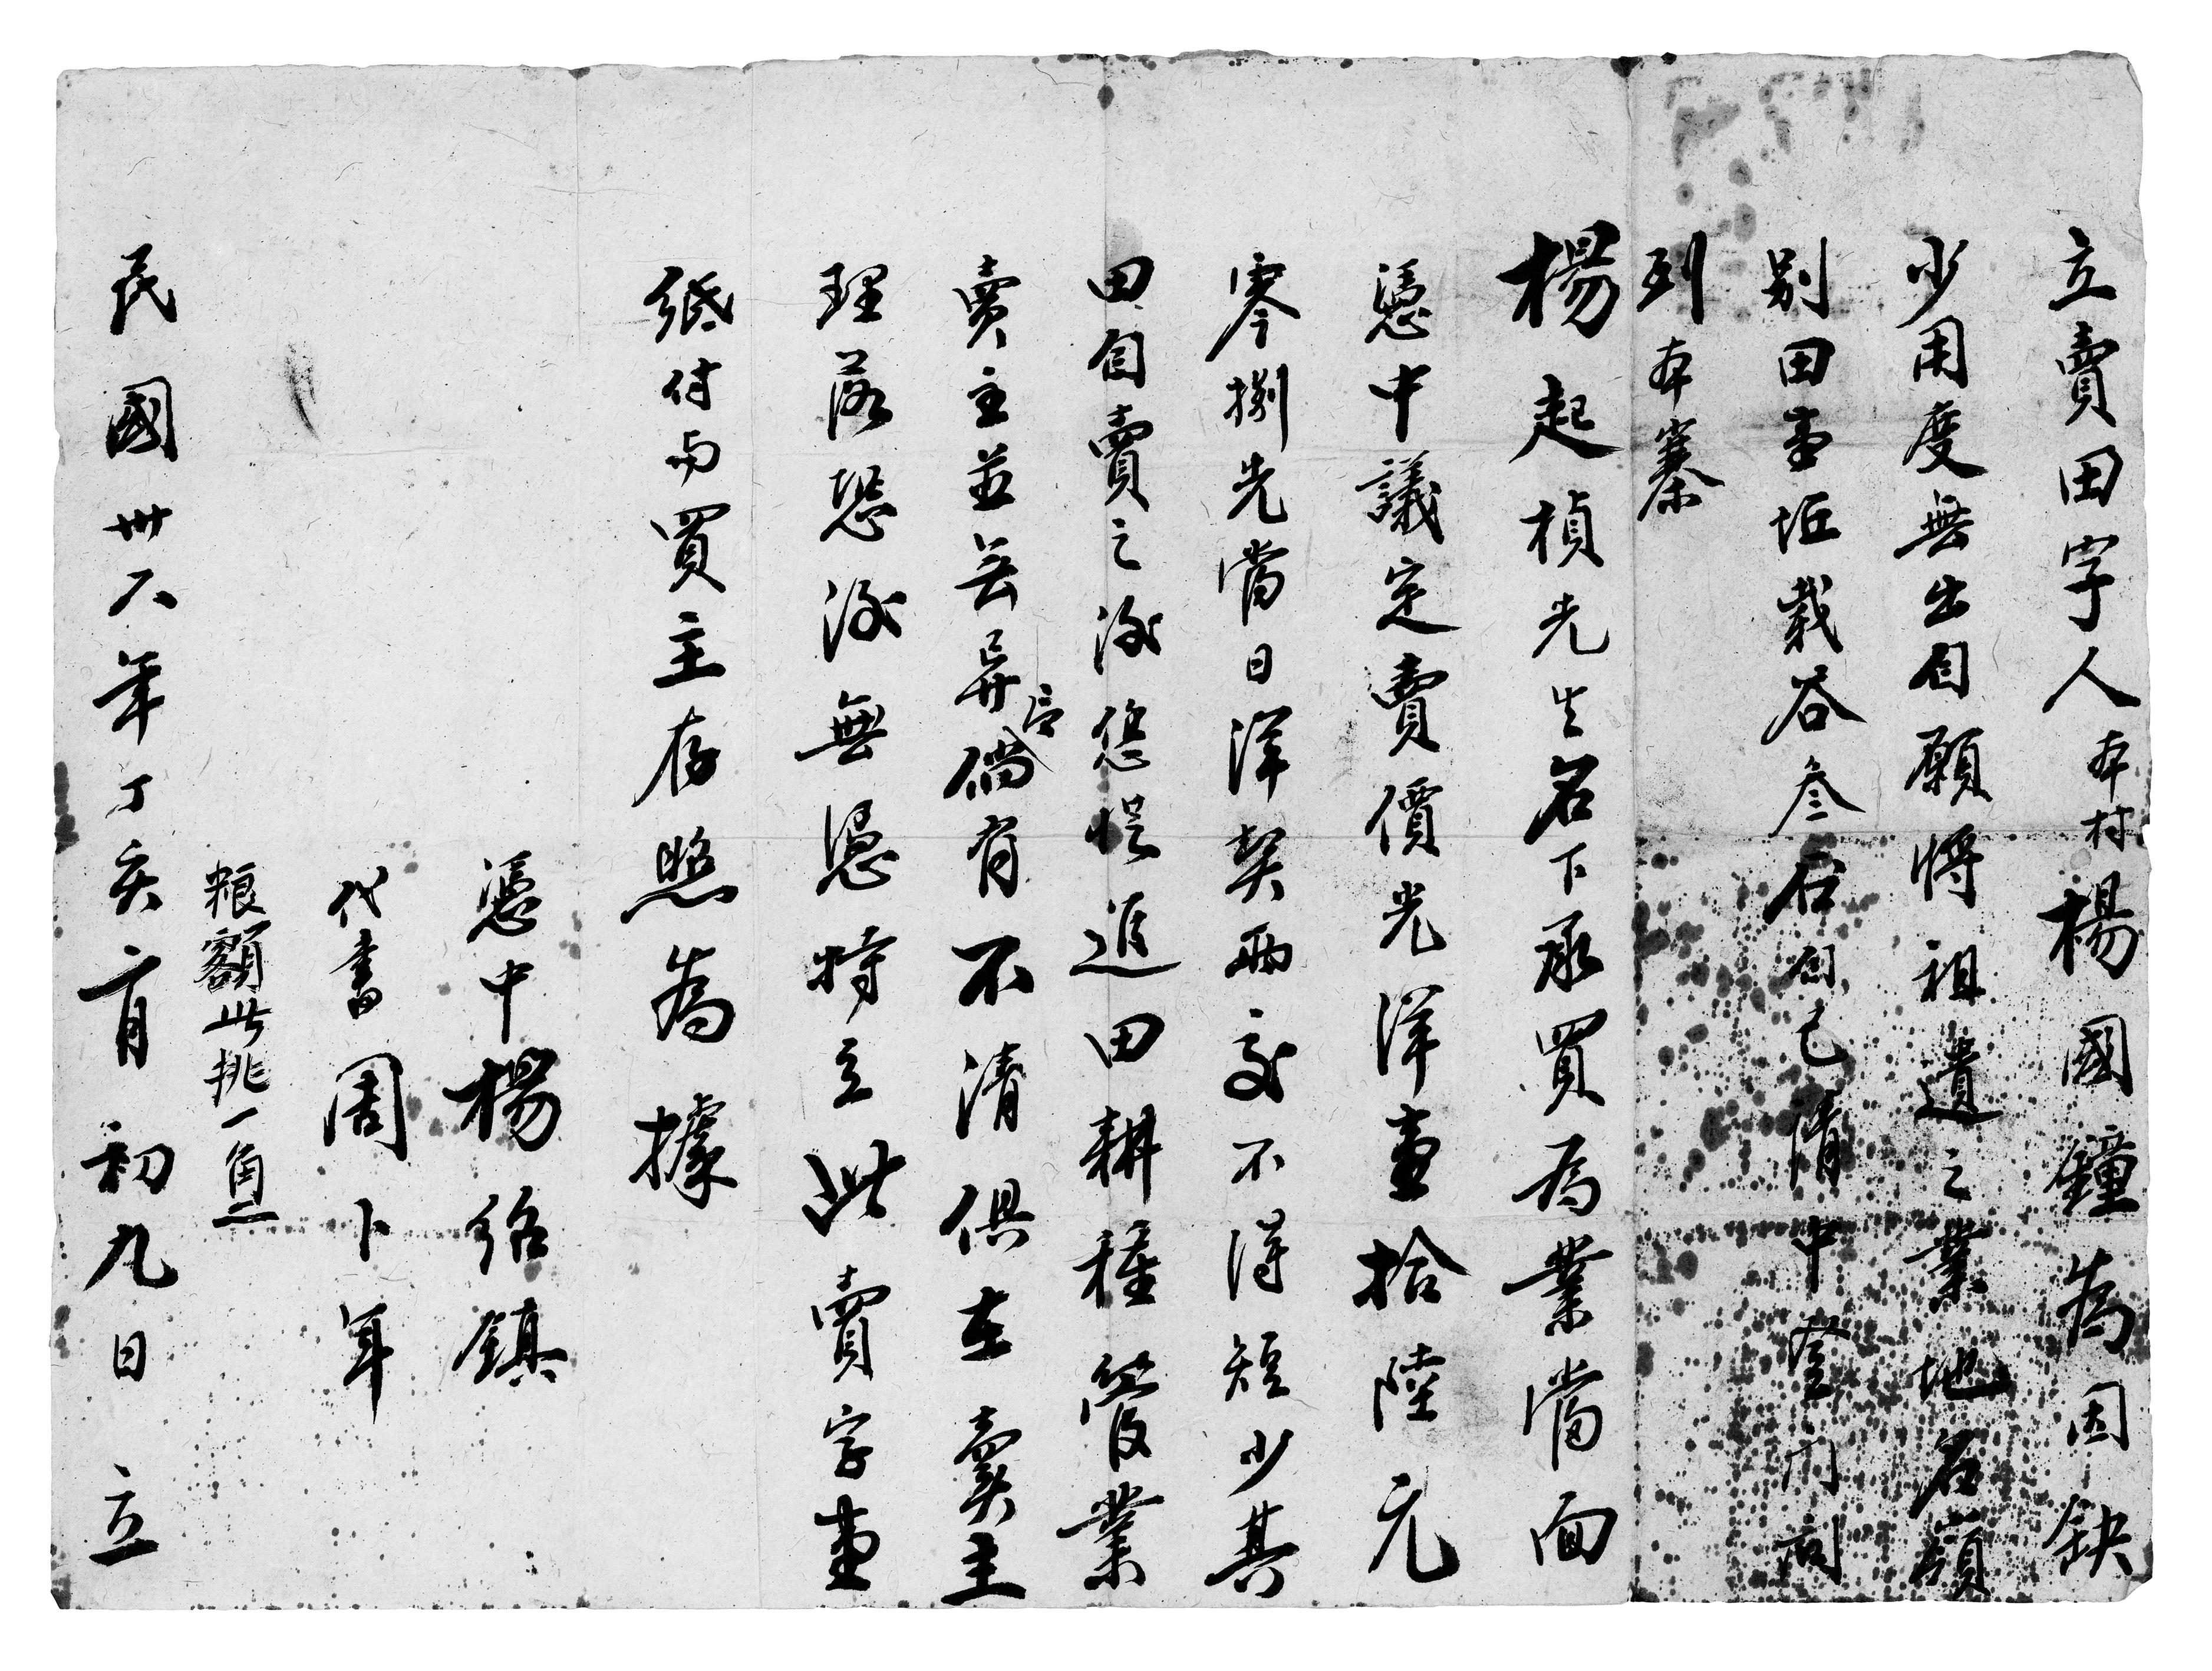 立賣田字人本村楊國鐘為因缺
少用度無出自願將祖遺之業地名嶺
別田壹坵栽谷叁石自己請中登门问
到本寨
楊起楨先生名下承買為業當面
憑中議定賣價光洋壹拾陸元
零捌先當日洋契兩交不得短少其
田自賣之後恁從進田耕種管業
賣主並無異言倘有不清俱在賣主
理落恐後無憑特立此賣字壹
紙付与買主存照為據
憑中楊紹鎮
代書周卜年
粮額此挑一角正
民國卅六年丁亥二月初九日立